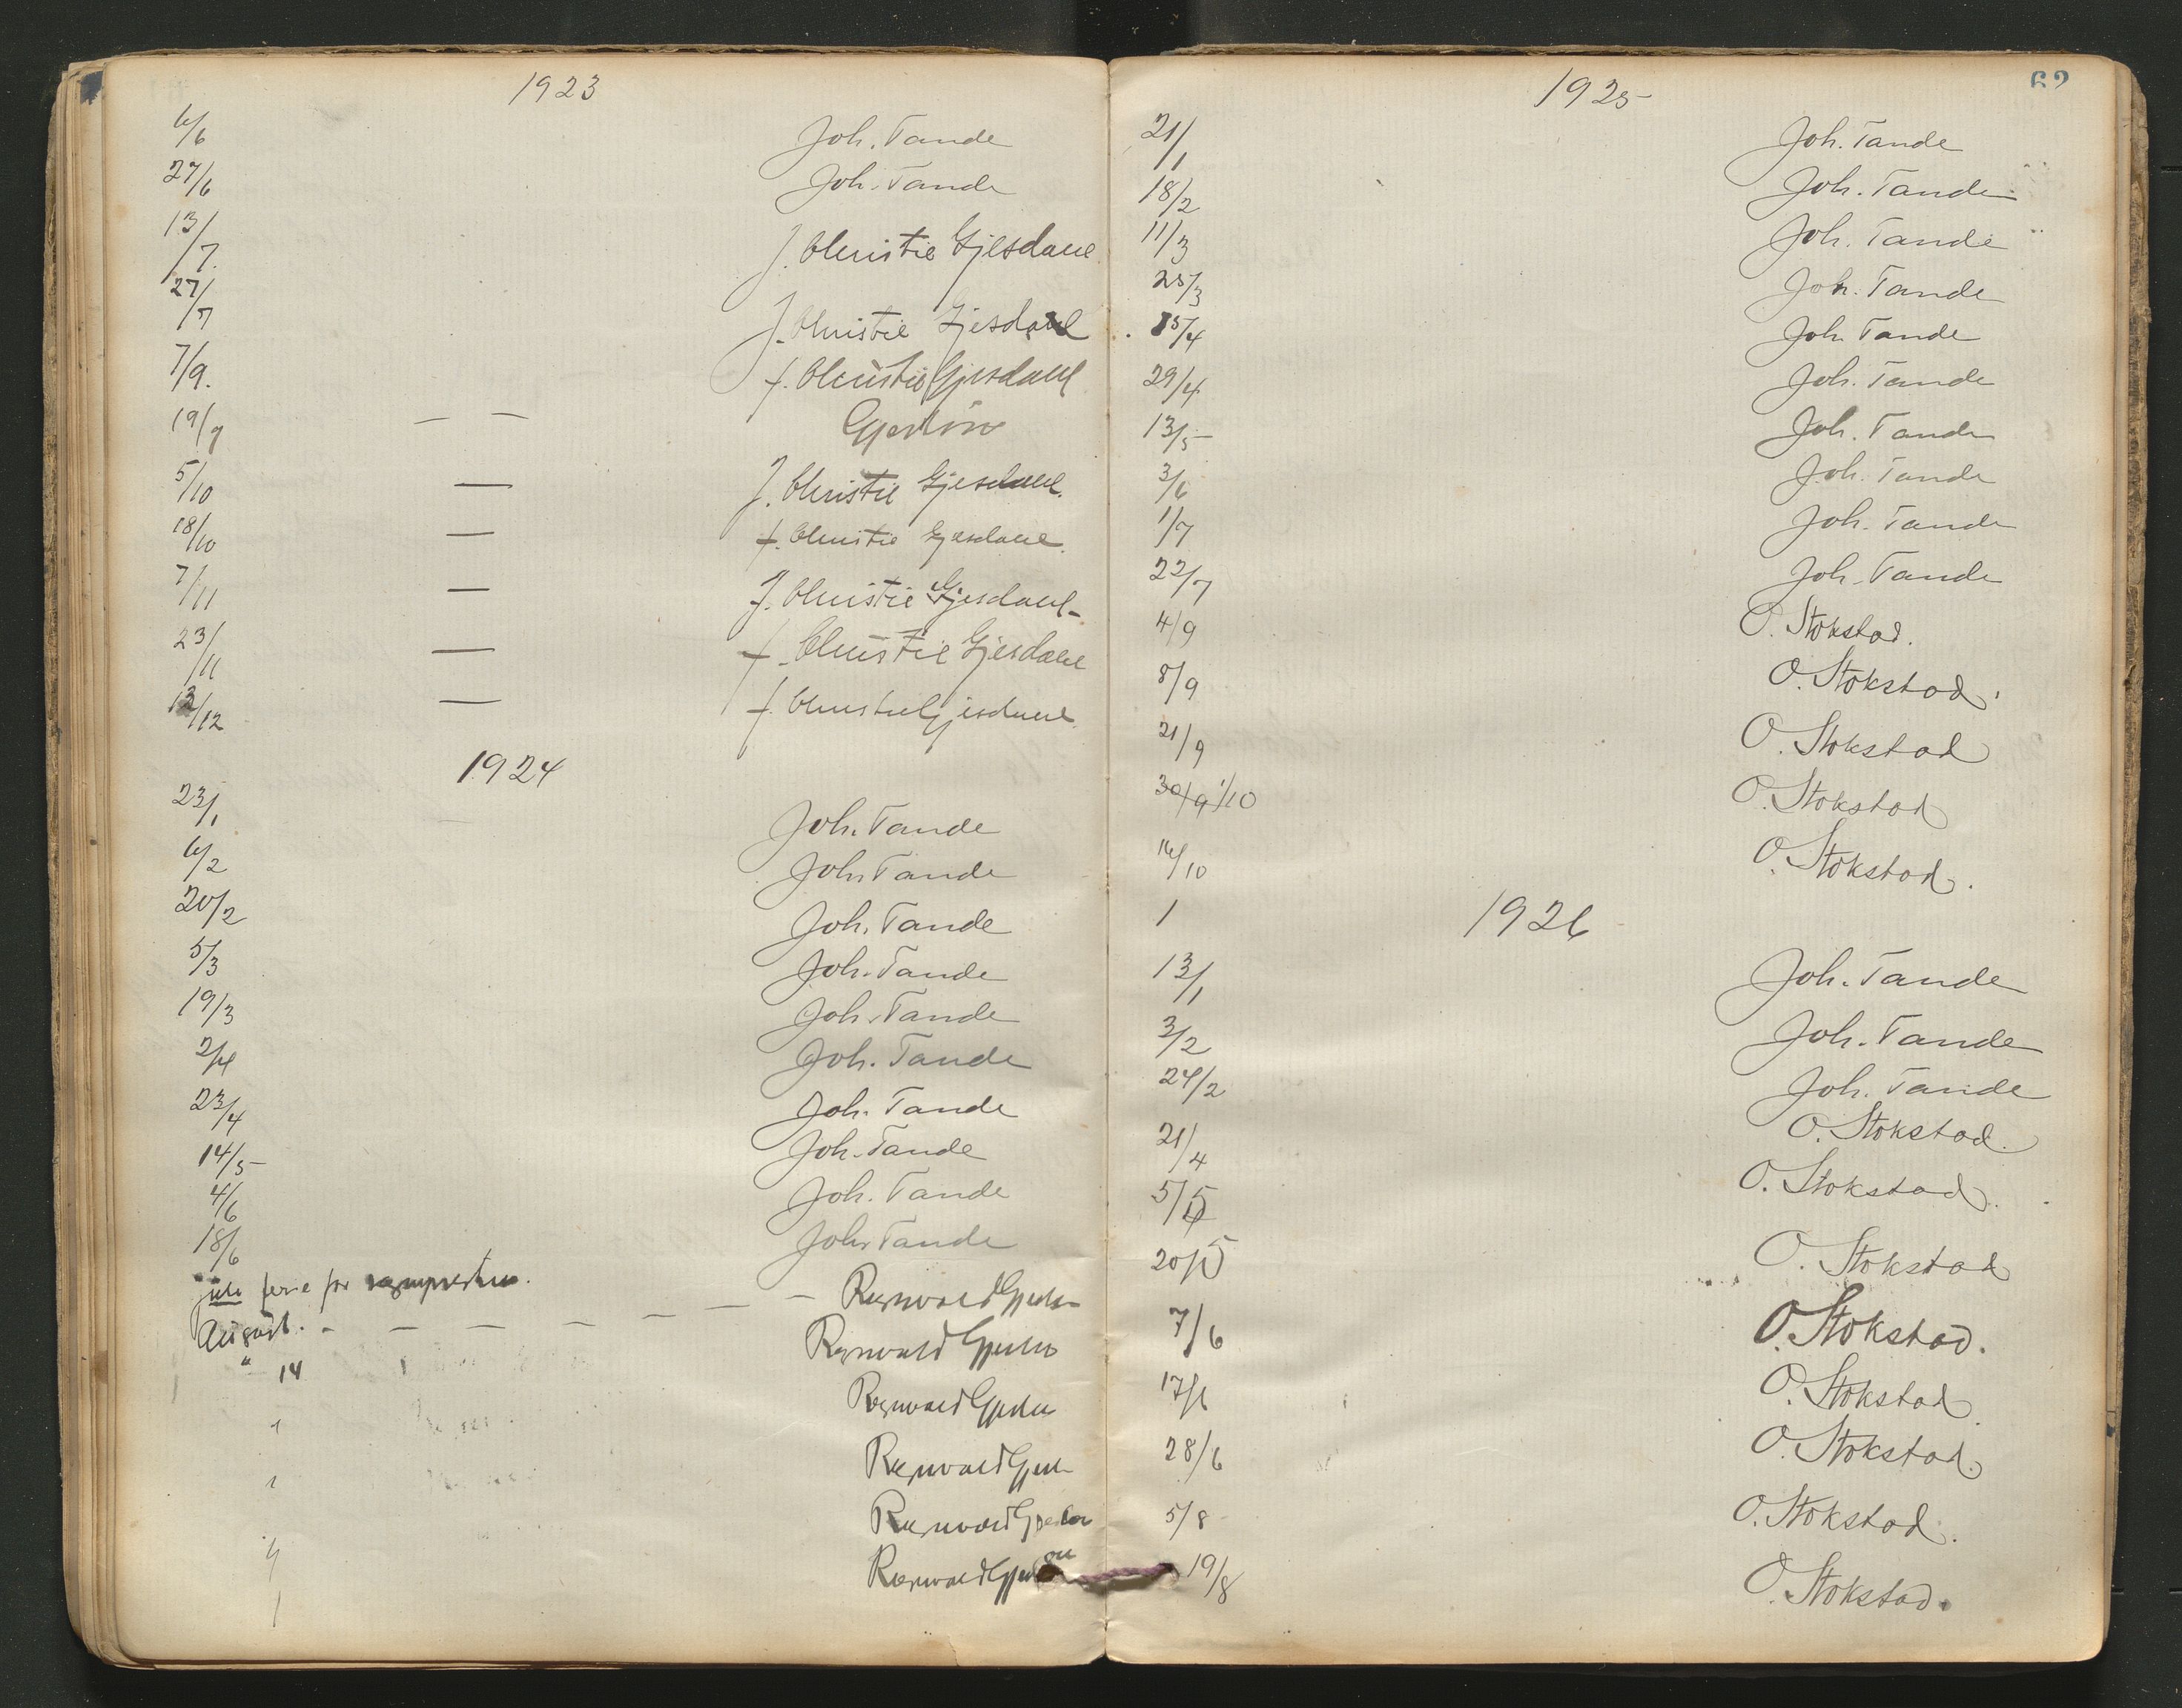 1923
6/6 Joh. Tande
27/6 Joh. Tande
13/7. J. Christie Gjesdahl
27/7 J. Christie Gjesdahl
7/9. J. Christie Gjesdahl
19/9 — —
5/10 — J. Christie Gjesdahl.
18/10 — J. Christie Gjesdahl.
7/11 — J. Christie Gjesdahl-
23/11 — J. Christie Gjesdahl
12/12 — J. Christie Gjesdahl.
1924
23/1 Joh. Tande
6/2 Joh Tande
20/2 Joh. Tande
5/3 Joh. Tande
19/3 Joh. Tande
2/4 Joh. Tande
23/4 Joh. Tande
14/5 Joh. Tande
4/6 Joh. Tande
18/6 Joh Tande
juli ferie for — — — Ragnvald
August. - — — — — Ragnvald
" 14 Ragnvald
Ragnvald
Ragnvald
Ragnvald
62
1925
21/1 Joh. Tande
18/2 Joh. Tande
11/3 Joh. Tande
25/3 Joh. Tande
15/4 Joh Tande
29/4 Joh. Tande
13/5 Joh. Tande
3/6 Joh. Tande
1/7 Joh. Tande
22/7 Joh. Tande
4/9 O. Stokstad.
8/9 O. Stokstad.
21/9 O. Stokstad
30/9 1/10 O. Stokstad
16/10 O. Stokstad.
1 1926
13/1 Joh. Tande
3/2 Joh. Tande
24/2 Joh. Tande
21/4 O. Stokstad.
5/5 O. Stokstad.
20/5 O. Stokstad
7/6 O. Stokstad.
17/6 O. Stokstad.
28/6 O. Stokstad.
5/8 O. Stokstad.
19/8 O. Stokstad.